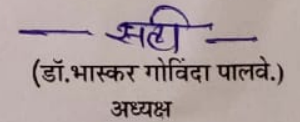 — सही —
(डॉ.भास्कर गोविंदा पालवे.)
अध्यक्ष